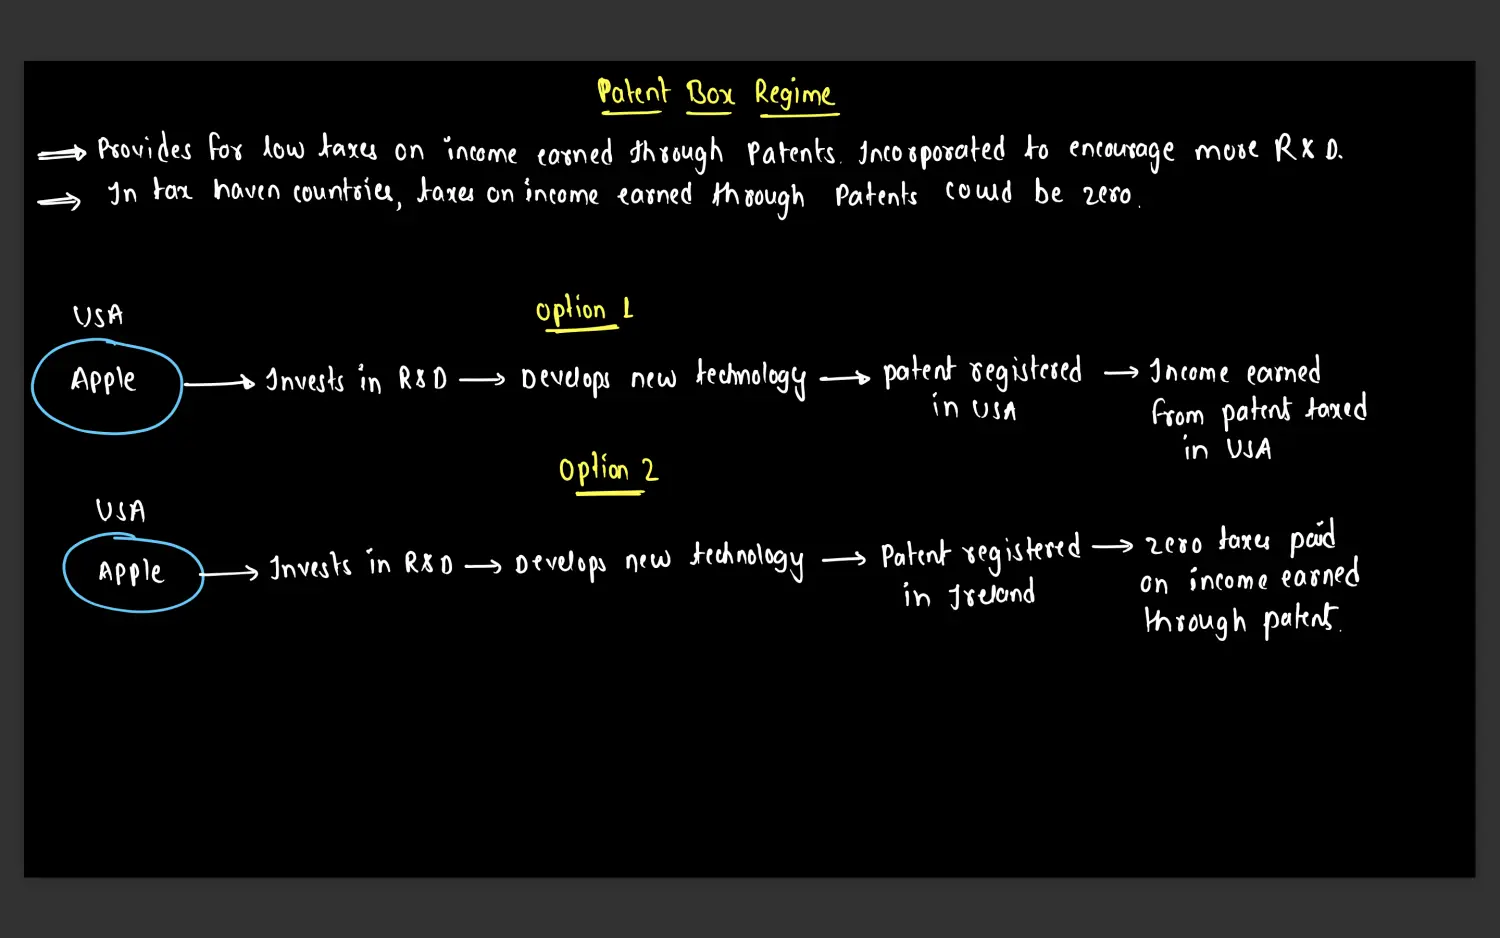 Patent Box Regime
⇒ Provides for low taxes on income earned through Patents. Incorporated to encourage more R&D.
⇒ In tax haven countries, taxes on income earned through Patents could be zero.
Option 1
USA
Apple → Invests in R&D → Develops new technology → patent registered in USA → Income earned from patent taxed in USA
Option 2
USA
Apple → Invests in R&D → Develops new technology → Patent registered in Ireland → zero taxes paid on income earned through patent.